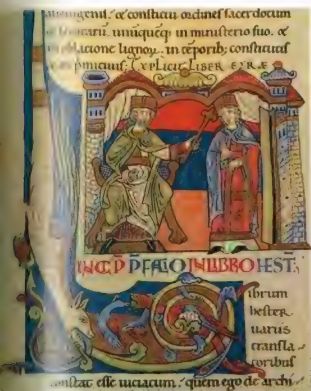 constitui ordines sacerdotum
unūquēqȝ in ministerio suo. &
oblatione lignoȝ. in tēporibȝ constitutis
& in primitiuis; EXPLICIT LIBER EZRÆ
INC̅P̅ P̅FATIO IN LIBRO HEST̅.
librum
hester
uarus
transla
toribus
constat esse uiciatum. quem ego de archi